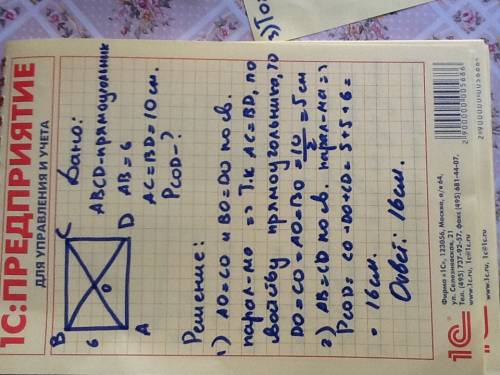 1С:ПРЕДПРИЯТИЕ
ДЛЯ УПРАВЛЕНИЯ И УЧЕТА
B C
6 O
A D
Дано:
ABCD-прямоугольник
AB=6
AC=BD=10 см.
PCOD-?
Решение:
1) AO=CO и BO=DO по св.
парал-ма => Т.к AC=BD, по
свойству прямоугольника, то
DO=CO=AO=BO=10/2=5 см
2) AB=CD по св. парал-ма =>
PCOD= CO+DO+CD=5+5+6=
=16см.
Ответ: 16см.
1С
Фирма «1С», 123056, Москва, а/я 64,
ул. Селезневская, 21
Тел. (495) 737-92-57, факс (495) 681-44-07,
www.1c.ru, 1c@1c.ru
2900000005666